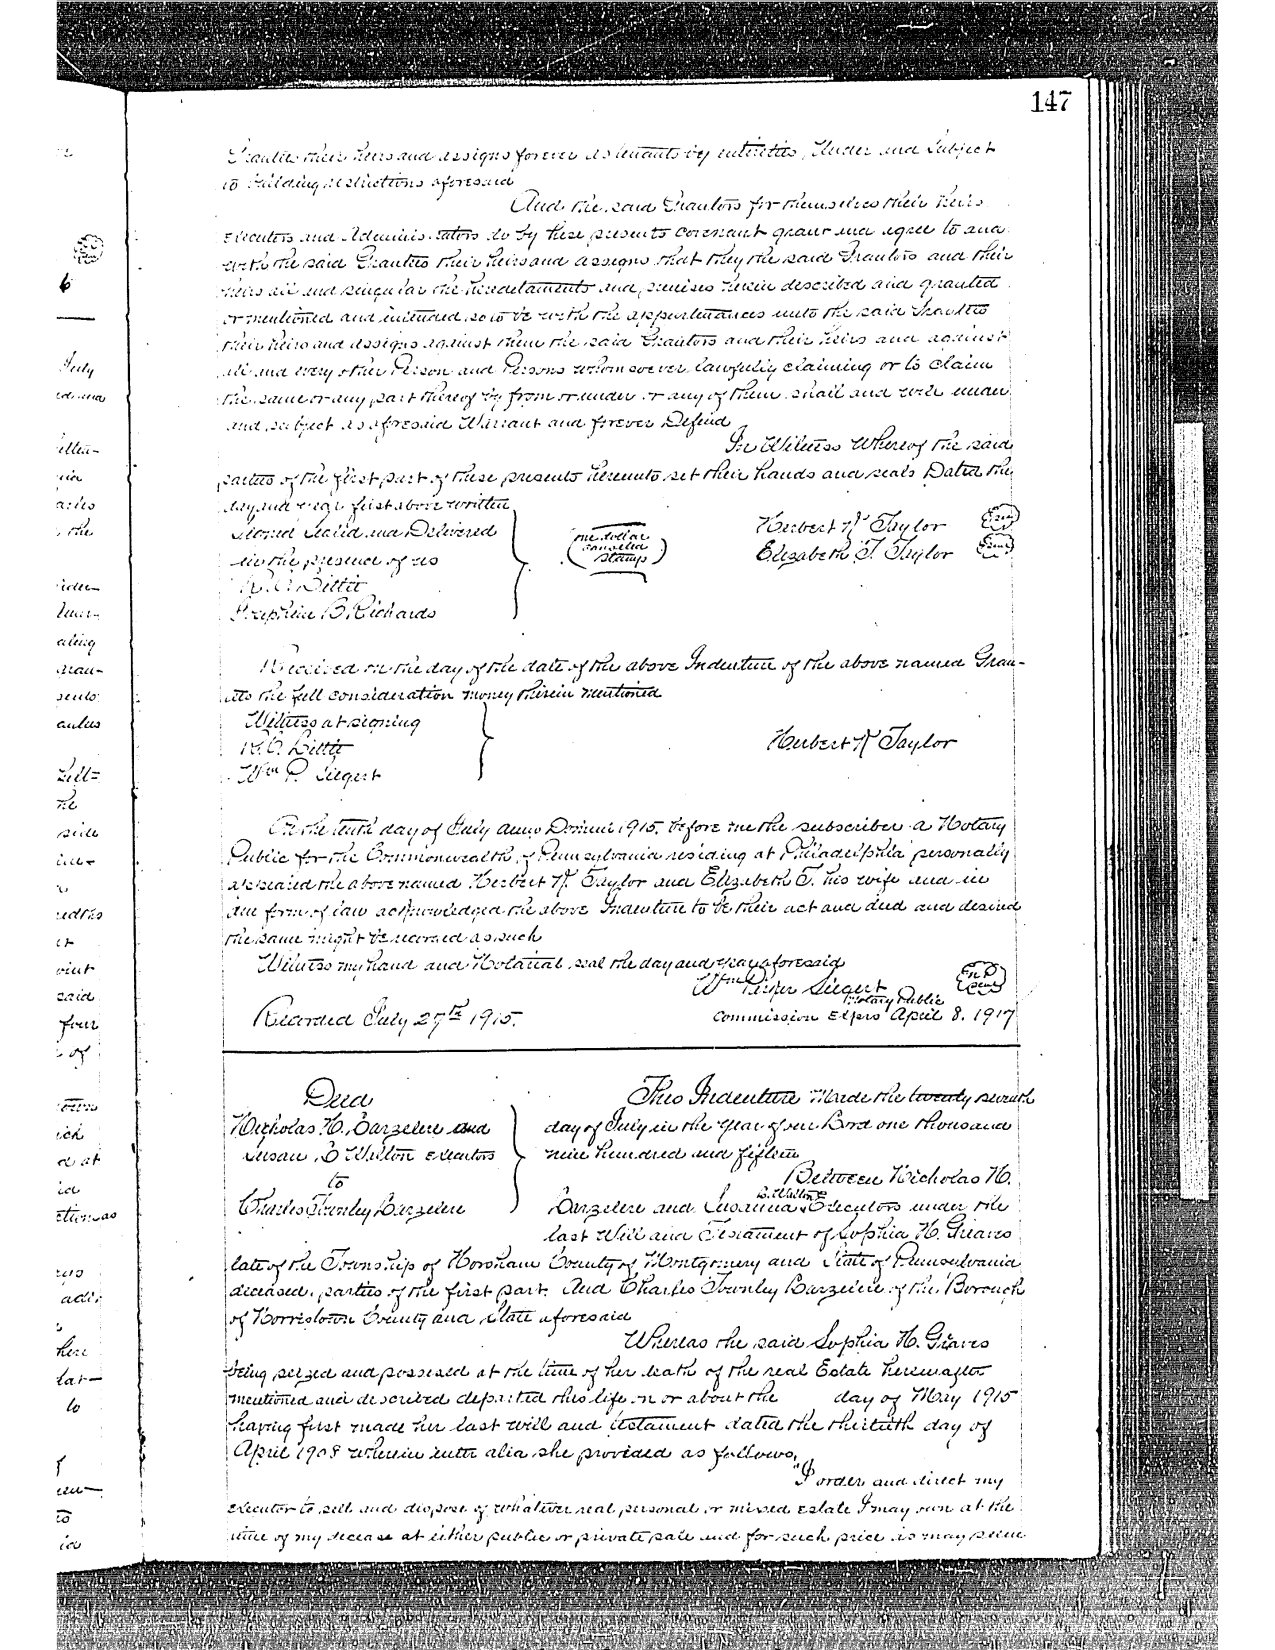 147
Grantees their heirs and assigns forever as tenants by entireties, Under and Subject
to building restrictions aforesaid
And the said Grantors for themselves their heirs
executors and Administrators do by these presents covenant grant and agree to and
with the said Grantees their heirs and assigns that they the said Grantors and their
heirs all and singular the hereditaments and premises herein described and granted
or mentioned and intended so to be with the appurtenances unto the said Grantees
their heirs and assigns against them the said Grantors and their heirs and against
all and every other Person and Persons whomsoever lawfully claiming or to claim
the same or any part thereof by from or under or any of them shall and will under
and subject as aforesaid Warrant and forever Defend
In Witness Whereof the said
parties of the first part of these presents hereunto set their hands and seals Dated the
day and year first above written
Signed Sealed and Delivered
in the presence of us
Josephine B. Richards
(one dollar
canceled
stamps)
Herbert N Taylor Seal
Elizabeth T. Taylor Seal
Received on the day of the date of the above Indenture of the above named Gran-
tees the full consideration money therein mentioned
Witness at signing
Wm P. Siegert
Herbert N Taylor
On the tenth day of July anno Domini 1915, before me the subscriber a Notary
Public for the Commonwealth of Pennsylvania residing at Philadelphia personally
appeared the above named Herbert N. Taylor and Elizabeth T. his wife and in
due form of law acknowledged the above Indenture to be their act and deed and desired
the same might be recorded as such
Witness my hand and Notarial seal the day and year aforesaid
Wm Siegert
Notary Public
Commission Expires April 8, 1917
Recorded July 27th 1915.
Deed
Nicholas H. Larzelere and
Susan B Walton executors
to
Charles Townley Larzelere
This Indenture Made the twenty seventh
day of July in the year of our Lord one thousand
nine hundred and fifteen
Between Nicholas H.
Larzelere and Susanna B. Walton Executors under the
last Will and Testament of Sophia H. Graves
late of the Township of Horsham County of Montgomery and State of Pennsylvania
deceased, parties of the first part. And Charles Townley Larzelere of the Borough
of Norristown County and State aforesaid
Whereas the said Sophia H. Graves
being seized and possessed at the time of her death of the real Estate hereinafter
mentioned and described departed this life on or about the day of May 1915
having first made her last will and testament dated the thirtieth day of
April 1908 wherein inter alia she provided as follows,
"I order and direct my
executor to sell and dispose of whatever real, personal or mixed estate I may own at the
time of my decease at either public or private sale and for such price as may seem